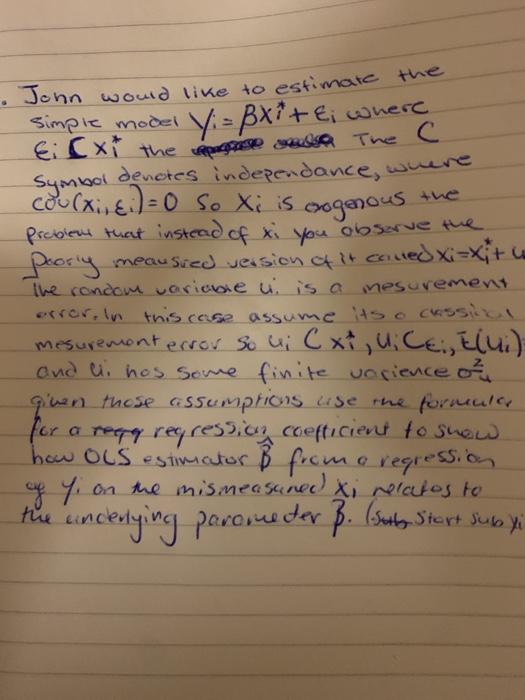 . John would like to estimate the
simple model Yi = βXi* + εi where
εi C xi* the The C
Symbol denotes independance, where
cov(xi, εi) = 0 So Xi is exogenous the
problem that instead of xi you observe the
poorly meausred version of it called Xi = xi* + u
The random variable ui is a mesurement
error. In this case assume its a classical
mesurement error so ui C xi*, ui C εi, E(ui)
and ui has some finite varience σ²u
given those assumptions use the formular
for a regression coefficient to show
how OLS estimator β̂ from a regression
of Yi on the mismeasured xi relates to
the underlying parameter β. (Start sub yi